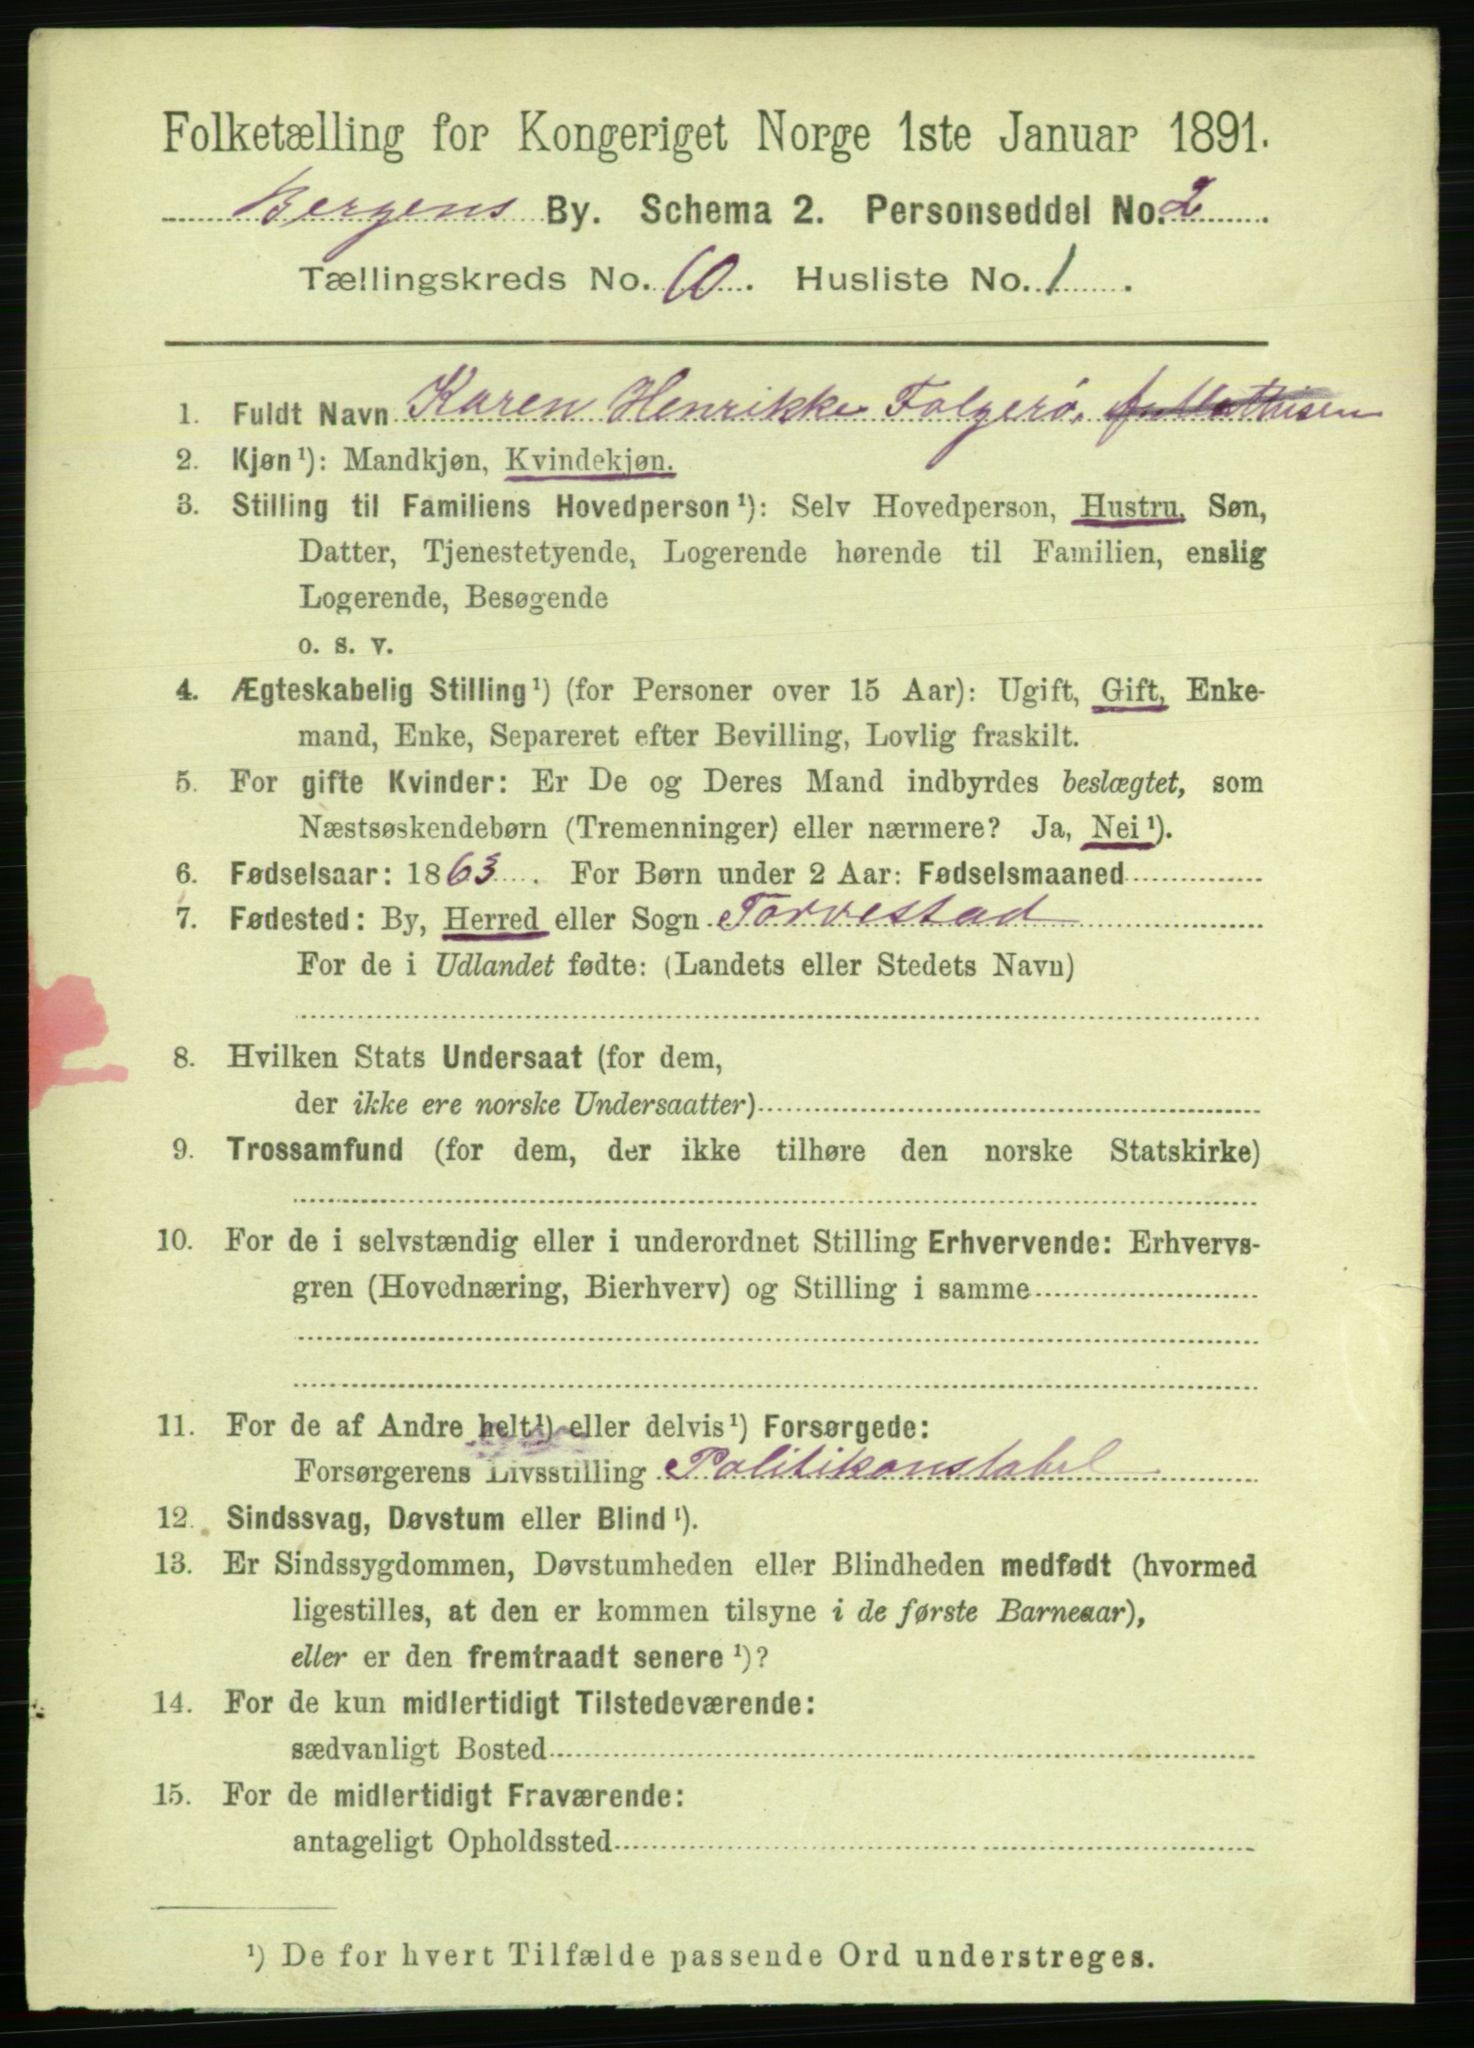 Folketælling for Kongeriget Norge 1ste Januar 1891.
Bergens By. Schema 2. Personseddel No. 2
Tællingskreds No. 60. Husliste No. 1.
1. Fuldt Navn Karen Henrikke Folgerö, f. Mathisen
2. Kjøn¹): Mandkjøn, Kvindekjøn.
3. Stilling til Familiens Hovedperson¹): Selv Hovedperson, Hustru, Søn,
Datter, Tjenestetyende, Logerende hørende til Familien, enslig
Logerende, Besøgende
o. s. v.
4. Ægteskabelig Stilling¹) (for Personer over 15 Aar): Ugift, Gift, Enke-
mand, Enke, Separeret efter Bevilling, Lovlig fraskilt.
5. For gifte Kvinder: Er De og Deres Mand indbyrdes beslægtet, som
Næstsøskendebørn (Tremenninger) eller nærmere? Ja, Nei¹).
6. Fødselsaar: 1863. For Børn under 2 Aar: Fødselsmaaned
7. Fødested: By, Herred eller Sogn Torvestad
For de i Udlandet fødte: (Landets eller Stedets Navn)
8. Hvilken Stats Undersaat (for dem,
der ikke ere norske Undersaatter)
9. Trossamfund (for dem, der ikke tilhøre den norske Statskirke)
10. For de i selvstændig eller i underordnet Stilling Erhvervende: Erhvervs-
gren (Hovednæring, Bierhverv) og Stilling i samme
11. For de af Andre helt¹) eller delvis¹) Forsørgede:
Forsørgerens Livsstilling Politikonstabel
12. Sindssvag, Døvstum eller Blind¹).
13. Er Sindssygdommen, Døvstumheden eller Blindheden medfødt (hvormed
ligestilles, at den er kommen tilsyne i de første Barneaar),
eller er den fremtraadt senere¹)?
14. For de kun midlertidigt Tilstedeværende:
sædvanligt Bosted
15. For de midlertidigt Fraværende:
antageligt Opholdssted
¹) De for hvert Tilfælde passende Ord understreges.